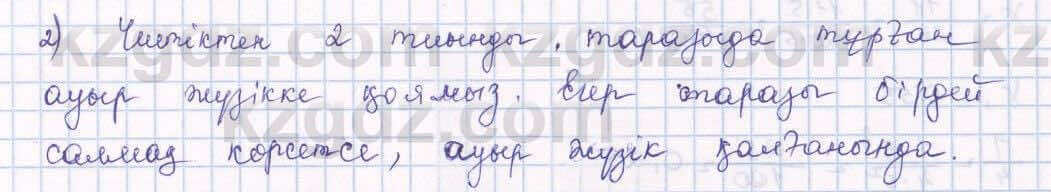 2) Үштіктен 2 тиынды, таразыда тұрған
ауыр жүзікке қоямыз. Егер таразы бірдей
салмақ көрсетсе, ауыр жүзік қалғанында.